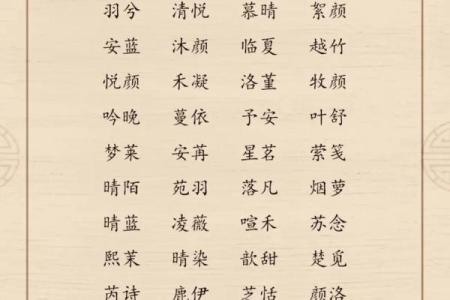 羽兮 清悦 慕晴 絮颜
安蓝 沐颜 临夏 越竹
悦颜 禾凝 洛堇 牧颜
吟晚 蔓依 予安 叶舒
梦莱 安苒 星茗 萦笺
晴陌 苑羽 落凡 烟萝
晴蓝 凌薇 喧禾 苏念
熙茉 晴染 歆甜 楚觅
芮诗 鹿伊 芝恬 颜洛